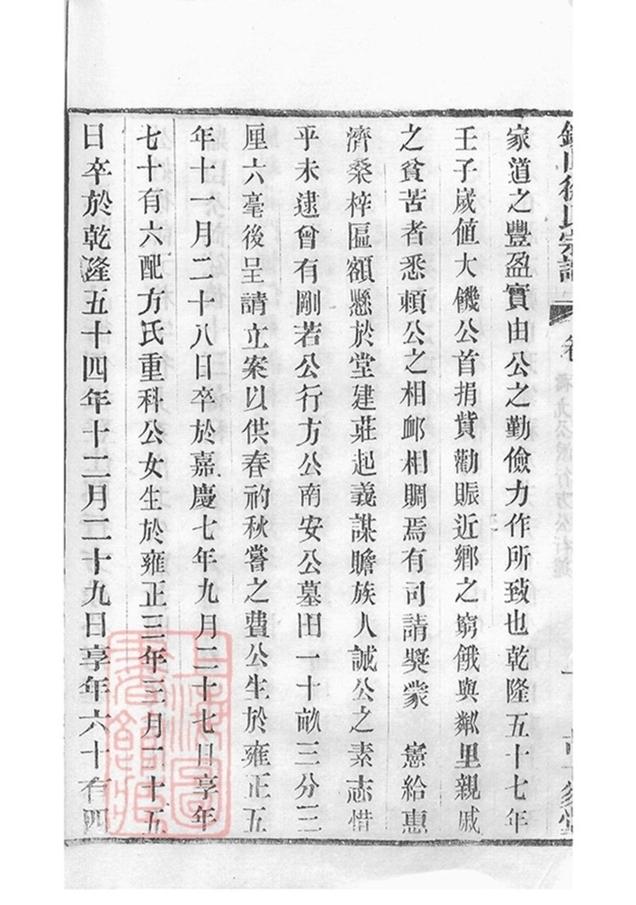 家道之豐盈實由公之勤儉力作所致也乾隆五十七年
壬子歲值大饑公首捐貲勸賑近鄉之窮餓與鄰里親戚
之貧苦者悉賴公之相卹相賙焉有司請獎蒙　憲給惠
濟桑梓匾額懸於堂建莊起義謀贍族人誠公之素志惜
乎未逮曾有剛若公行方公南安公墓田一十畝三分三
厘六毫後呈請立案以供春礿秋嘗之費公生於雍正五
年十一月二十八日卒於嘉慶七年九月二十七日享年
七十有六配方氏重科公女生於雍正三年三月二十五
日卒於乾隆五十四年十二月二十九日享年六十有四